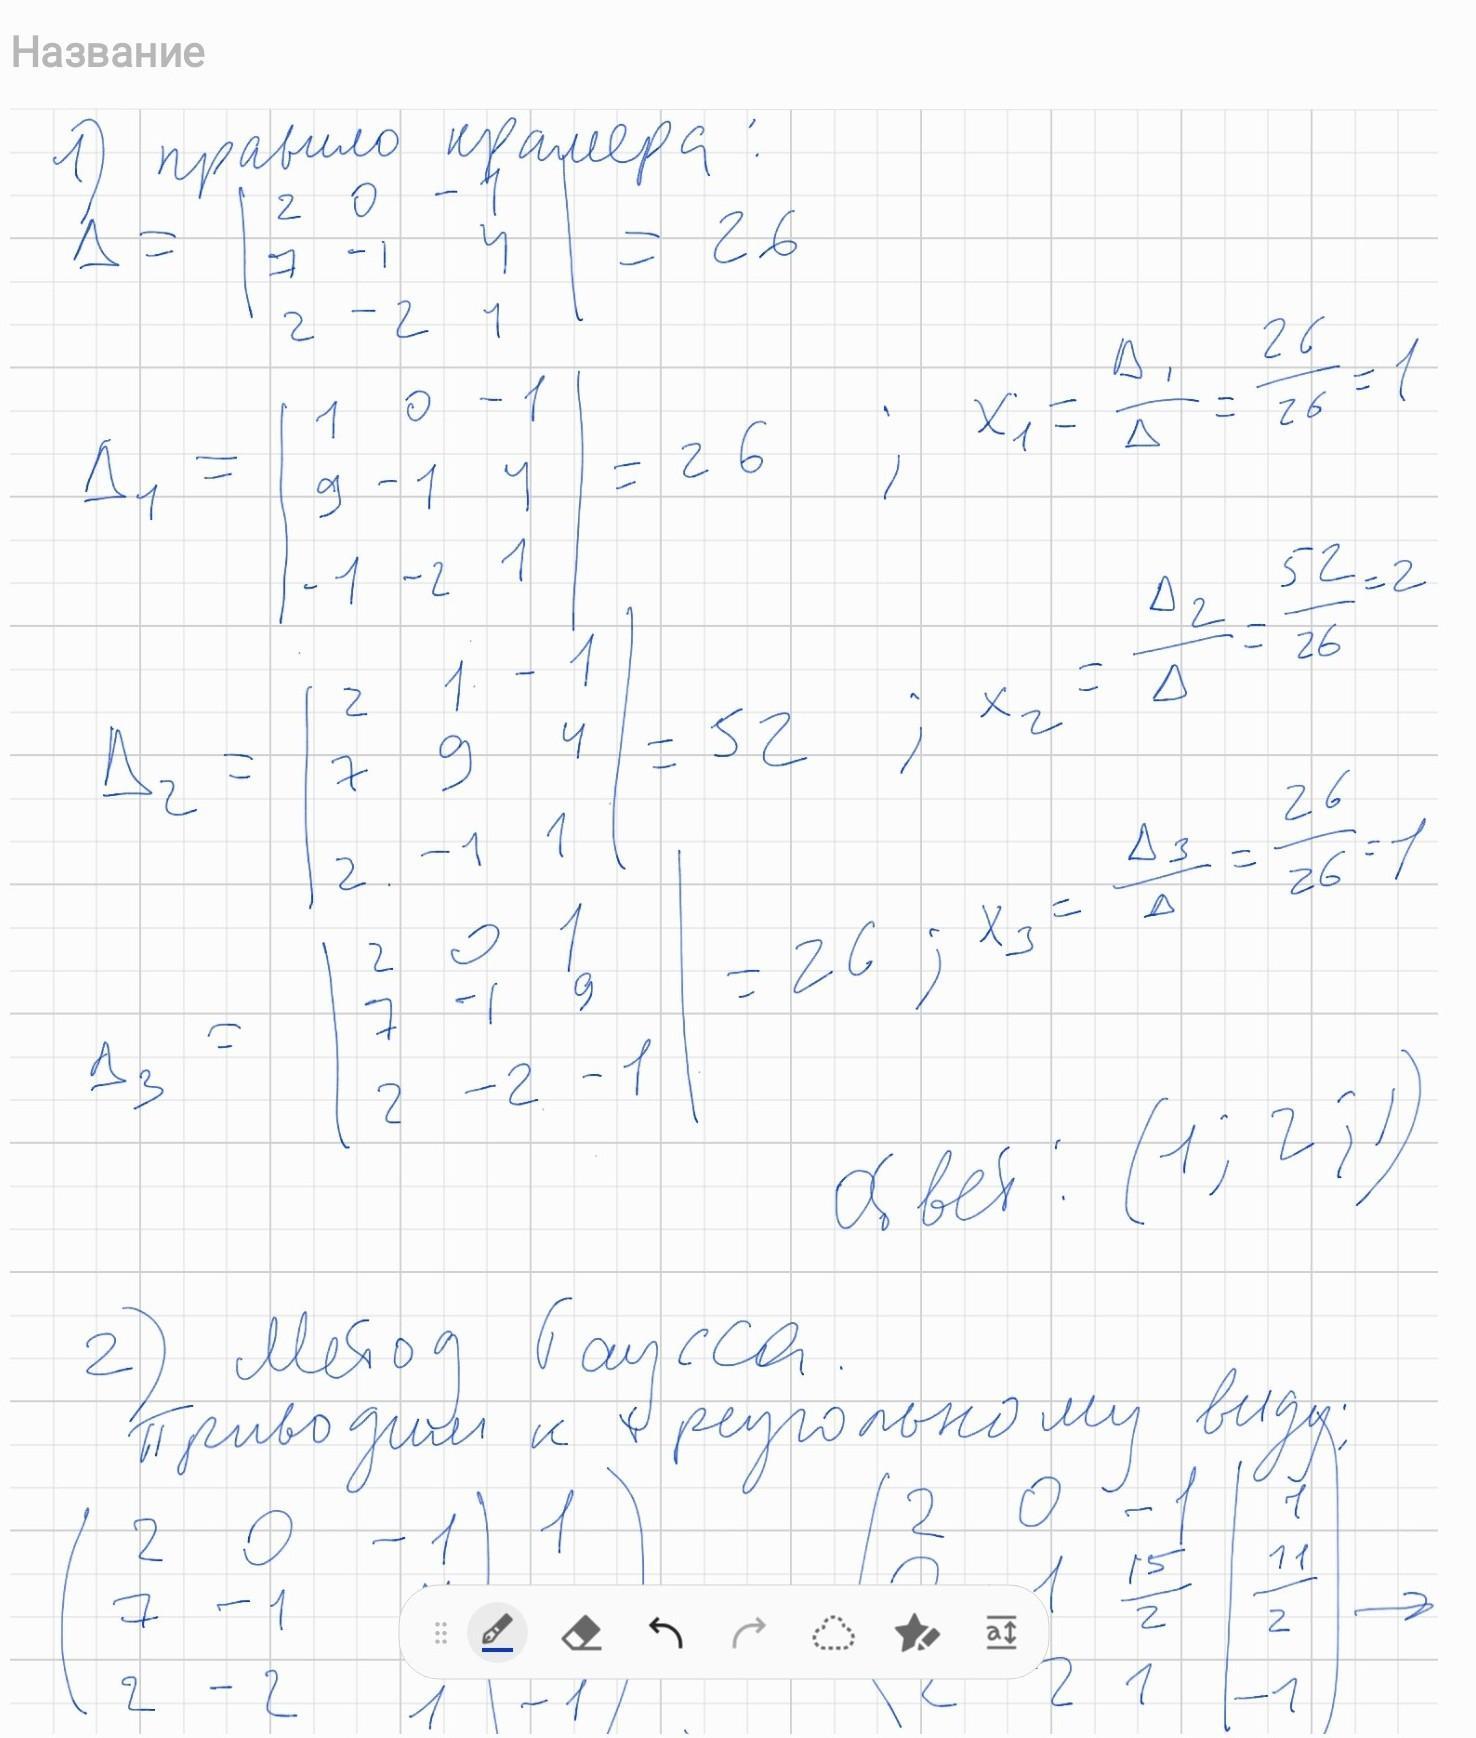 Название
1) правило крамера:
Δ = | 2 0 -1 |
| 7 -1 4 | = 26
| 2 -2 1 |
Δ1 = | 1 0 -1 |
| 9 -1 4 | = 26 ; x1 = Δ1/Δ = 26/26 = 1
| -1 -2 1 |
Δ2 = | 2 1 -1 |
| 7 9 4 | = 52 ; x2 = Δ2/Δ = 52/26 = 2
| 2 -1 1 |
Δ3 = | 2 0 1 |
| 7 -1 9 | = 26 ; x3 = Δ3/Δ = 26/26 = 1
| 2 -2 -1 |
Ответ: (1; 2; 1)
2) Метод Гаусса.
Приводим к треугольному виду:
( 2 0 -1 | 1 ) ( 2 0 -1 | 1 )
7 -1 1 15/2 | 11/2 →
2 -2 1 | -1 2 1 | -1
a